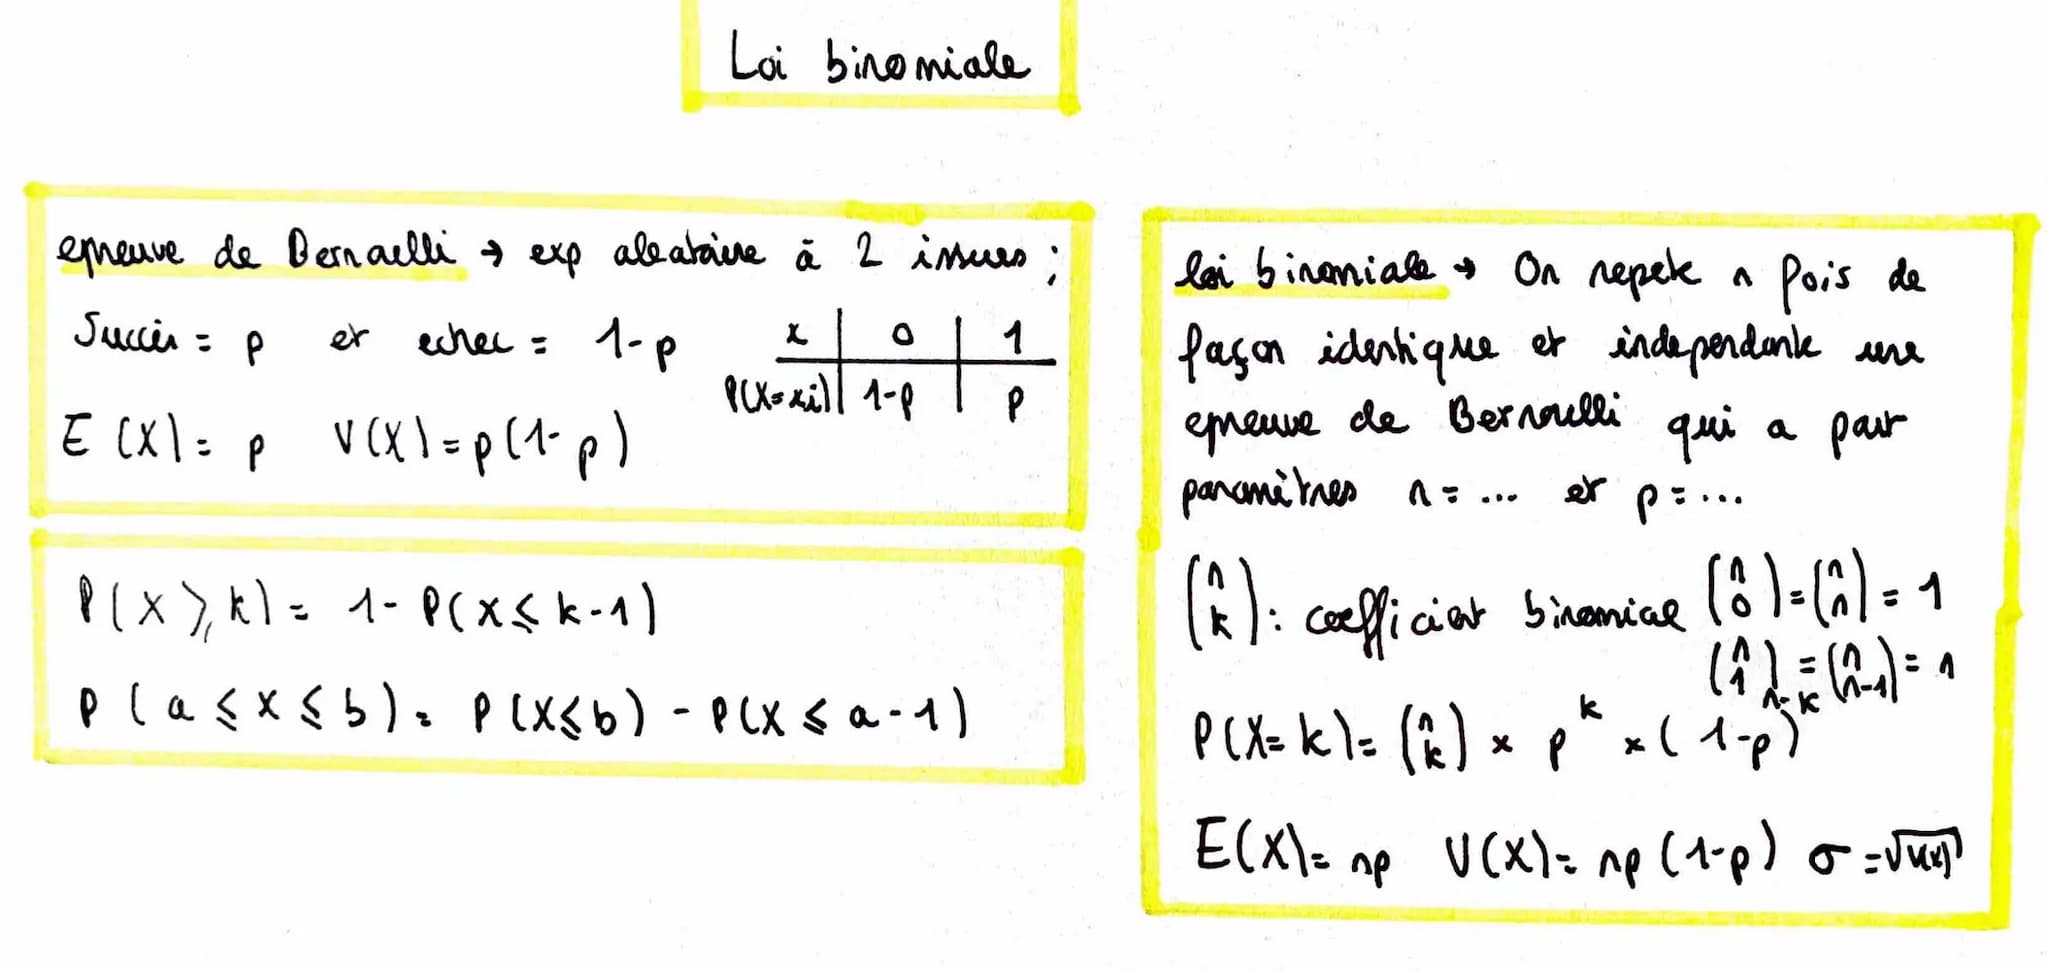 Loi binomiale
epreuve de Bernaelli → exp aleatoire à 2 issues ;
Succès = p et echec = 1-p
x | 0 | 1
P(X=xi) | 1-p | p
E(X) = p V(X) = p(1-p)
P(X ⩾ k) = 1 - P(X ⩽ k-1)
P(a ⩽ X ⩽ b) = P(X ⩽ b) - P(X ⩽ a-1)
loi binomiale → On repete n fois de
façon identique et independante une
epreuve de Bernoulli qui a pour
paramètres n = ... et p = ...
(n k) : coefficient binomial (n 0) = (n n) = 1
(n 1) = (n n-1) = 1
P(X = k) = (n k) × p^k × (1-p)^n-k
E(X) = np V(X) = np(1-p) σ = √V(X)